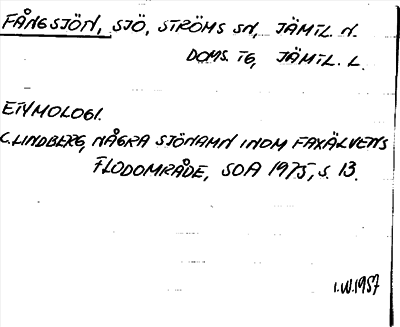 FÅNGSJÖN, SJÖ, STRÖMS SN, JÄMTL. N.
DOMS. TG, JÄMTL. L.
ETYMOLOGI.
C. LINDBERG, NÅGRA SJÖNAMN INOM FAXÄLVENS
FLODOMRÅDE, SOA 1975, S. 13.
I.W.1957